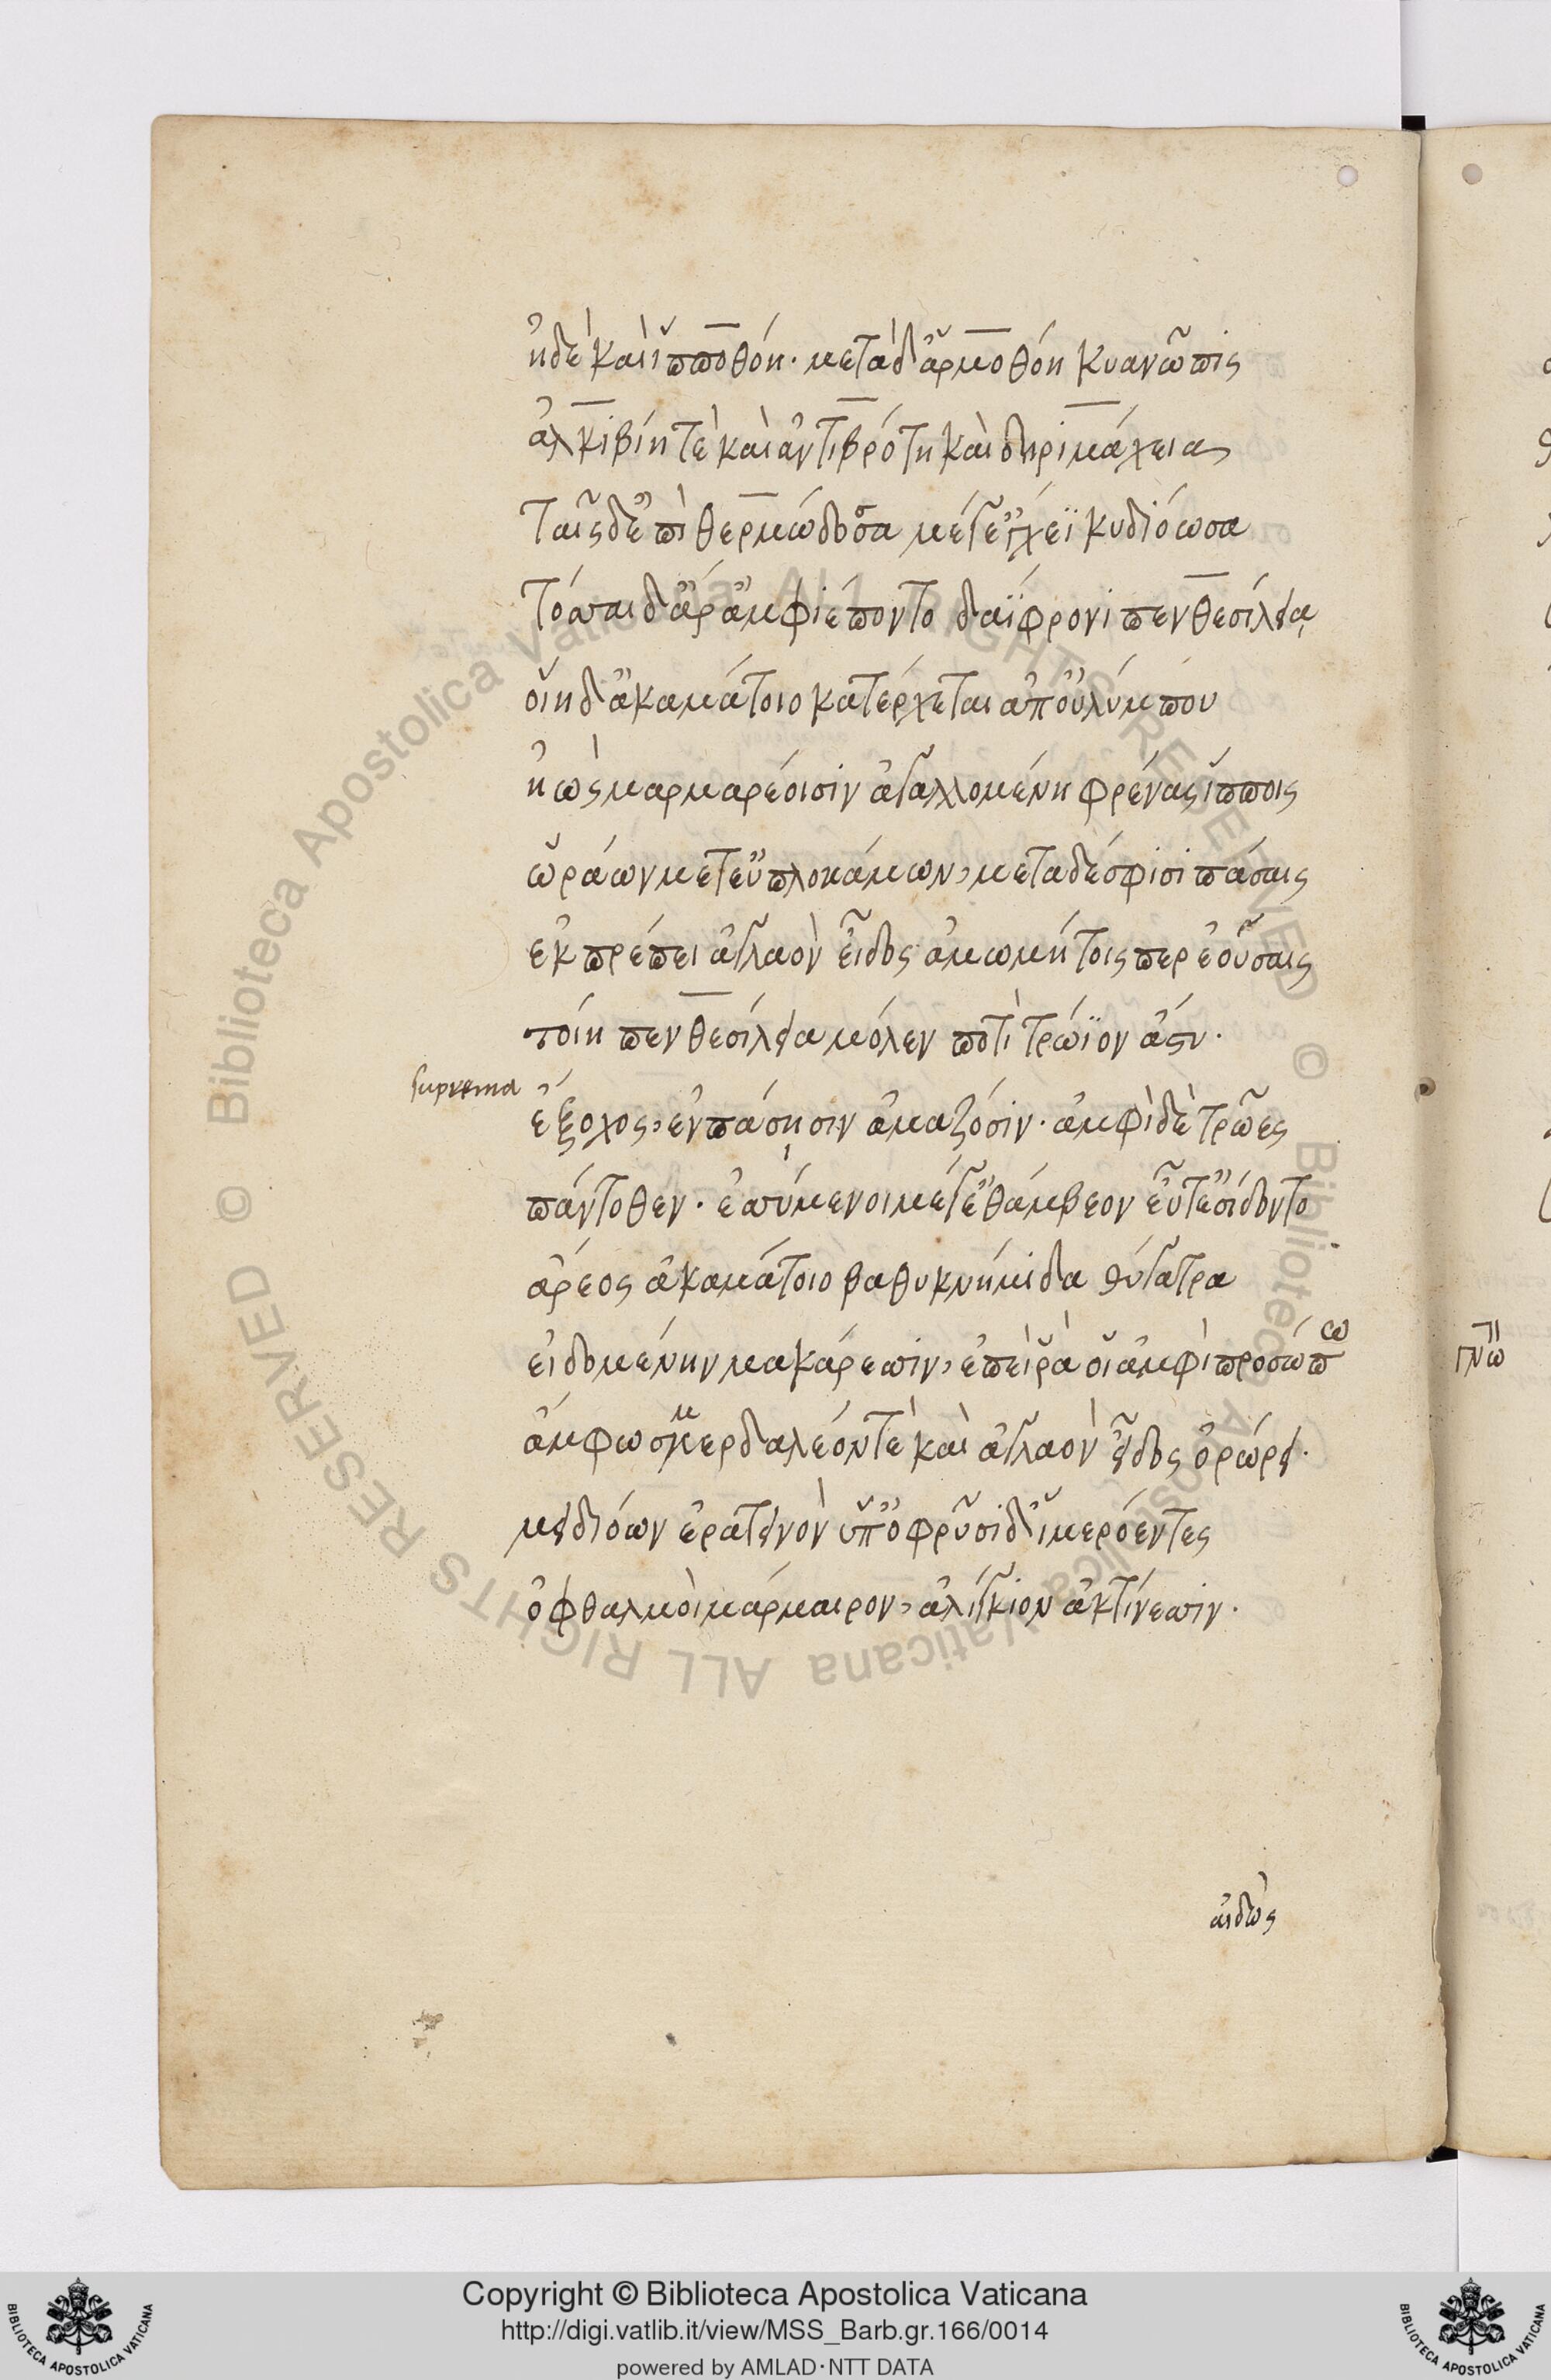 ἠδὲ καὶ ἱπποθόη· μετὰ δ' ἁρμοθόη κυανῶπις
ἀλκιβίη τὲ καὶ ἀντιβρότη καὶ δηριμάχεια
ταῖς δ' ἐπὶ θερμώδοσα μέγ' ἔγχεϊ κυδιόωσα
τόσσαι δ' ἄρ ἀμφιέποντο δαΐφρονι πενθεσιλείᾳ
οἵη δ' ἀκαμάτοιο κατέρχεται ἀπ' οὐλύμπου
ἠὼς μαρμαρέοισιν ἀγαλλομένη φρένας ἵπποις
ὡράων μετ' εὐπλοκάμων, μετα δέ σφισι πάσαις
ἐκπρέπει ἀγλαὸν εἶδος ἀμωμήτοις περ ἐούσαις
τοίη πενθεσίλεια μόλεν ποτὶ τρώϊον ἄστυ·
suprema
ἔξοχος, ἐν πάσῃσιν ἀμαζόσιν· ἀμφὶ δὲ τρῶες
πάντοθεν· ἐσσύμενοι μέγ' ἐθάμβεον εὖτ' ἐσίδοντο
ἄρεος ἀκαμάτοιο βαθυκνήμιδα θύγατρα
εἰδομένην μακάρεσσιν, ἐπεὶ ῥά οἱ ἀμφὶ προσώπω
ἄμφω σμερδαλέον τὲ καὶ ἀγλαὸν εἶδος ὀρώρει·
μειδιόων ἐρατεινὸν ὑπ' ὀφρύσι δ' ἱμερόεντες
ὀφθαλμοὶ μάρμαιρον, ἀλίγκιον ἀκτίνεσσιν·
αἰδὼς
Copyright © Biblioteca Apostolica Vaticana
http://digi.vatlib.it/view/MSS_Barb.gr.166/0014
powered by AMLAD·NTT DATA